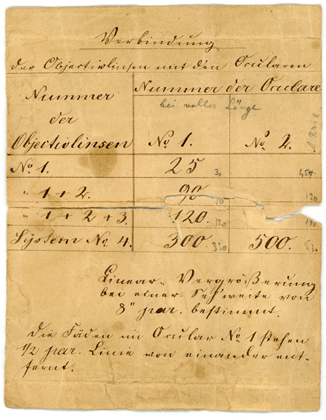 Verbindung
der Objectivlinsen mit den Ocularen
Nummer der Objectivlinsen
Nummer der Oculare
bei voller Länge
No 1. No 2.
No 1. 25 30
" 1 + 2. 90
" 1 + 2 + 3 120.
System No 4. 300. 500.
Linear-Vergrößerung
bei einer Sehweite von
8" par. bestimmt.
Die Fäden im Ocular No 1 stehen
1/2 par. Linie von einander ent-
fernt.